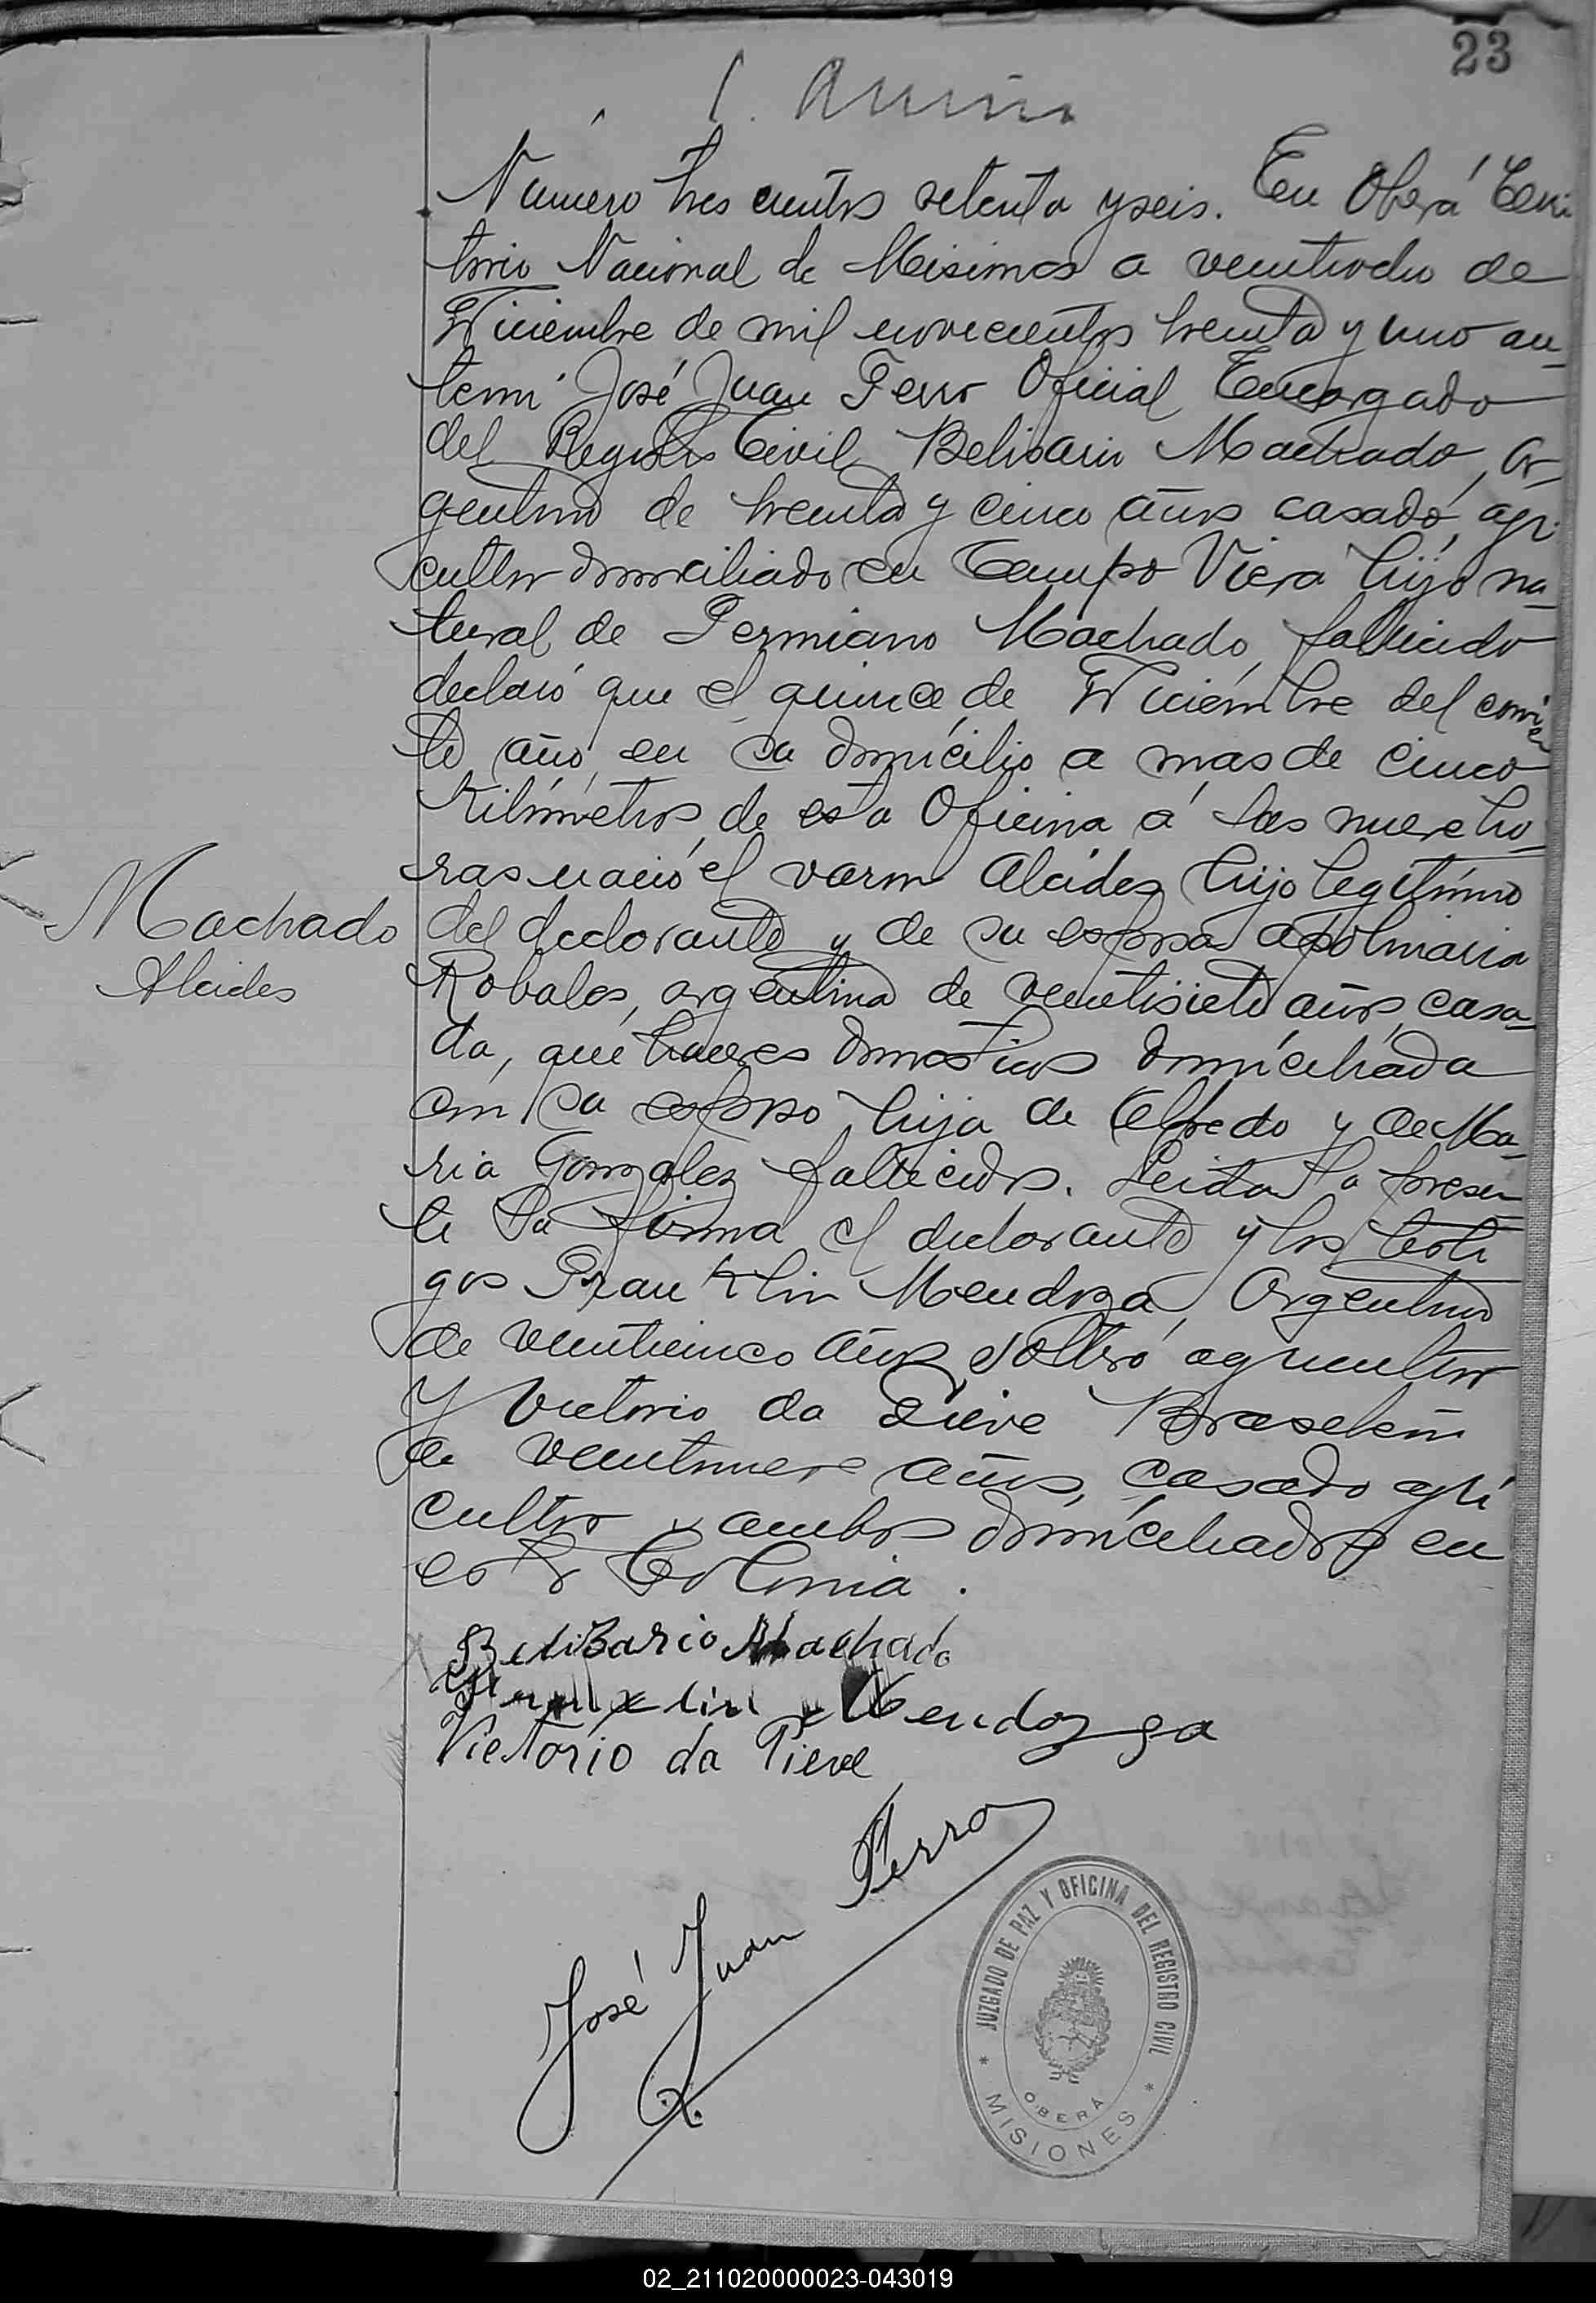 23
Numero tres cientos setenta y seis. En Oberá Terri
torio Nacional de Misiones a veintiocho de
Diciembre de mil novecientos treinta y uno an-
temi José Juan Ferro Oficial Encargado
del Registro Civil, Belisario Machado, ar-
gentino de treinta y cinco años casado, agri
cultor domiciliado en Campo Viera hijo na-
tural de Fermiano Machado, fallecido
declaró que el quince de Diciembre del corrien
te año, en su domicilio a mas de cinco
Kilómetros de esta Oficina a las nueve ho-
ras nació el varon Alcides hijo legítimo
del declarante y de su esposa Apolinaria
Robales, argentina de veintisiete años, casa-
da, que haceres domesticos domiciliada
con su esposo, hija de Elfredo y de Ma-
ria Gonzalez fallecidos. Leida la presen-
te la firma el declarante y los testi
gos Franklin Mendoza, Argentino
de veinticinco años, soltero agricultor
y Victorio da Pieve Brasileño
de veintinueve años, casado agri
cultor y ambos domiciliados en
esta Colonia.
Machado
Alcides
Belisario Machado
Franklin Mendoza
Victorio da Pieve
José Juan Ferro
JUZGADO DE PAZ Y OFICINA DEL REGISTRO CIVIL
* OBERÁ *
MISIONES
02_211020000023-043019